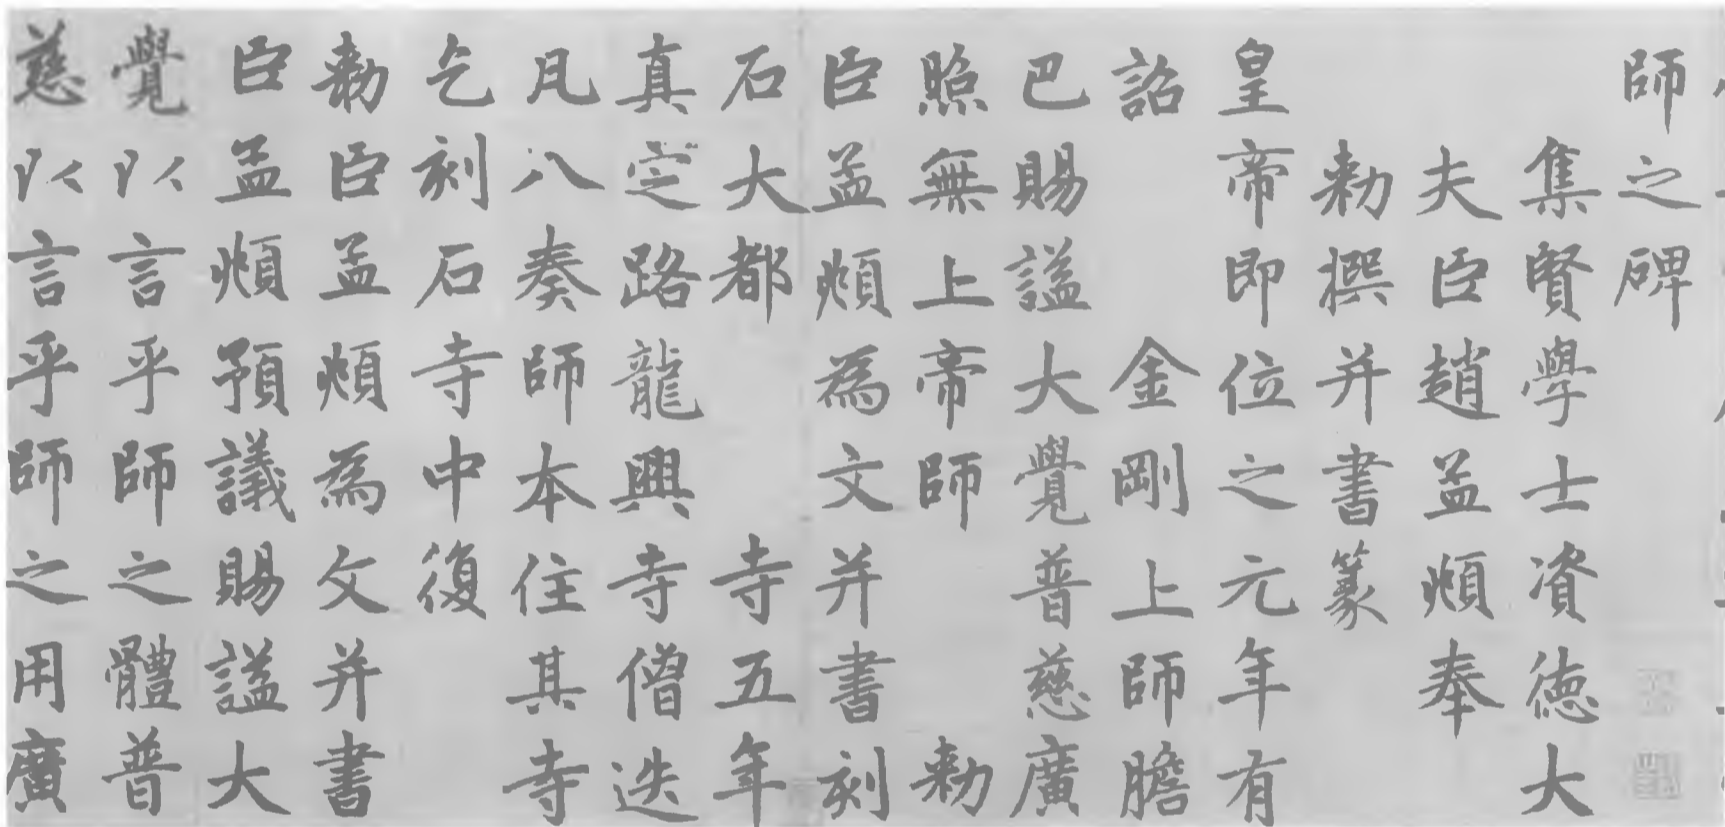 師之碑
集賢學士資德大
夫臣趙孟頫奉
勅撰并書篆
皇帝即位之元年有
詔金剛上師膽
巴賜謚大覺普慈廣
照無上帝師勅
臣孟頫為文并書刻
石大都寺五年
真定路龍興寺僧迭
凡八奏師本住其寺
乞刻石寺中復
勅臣孟頫為文并書
臣孟頫預議賜謚大
覺以言乎師之體普
慈以言乎師之用廣